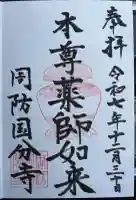 奉拝
令和七年十二月三十日
本尊薬師如来
周防国分寺